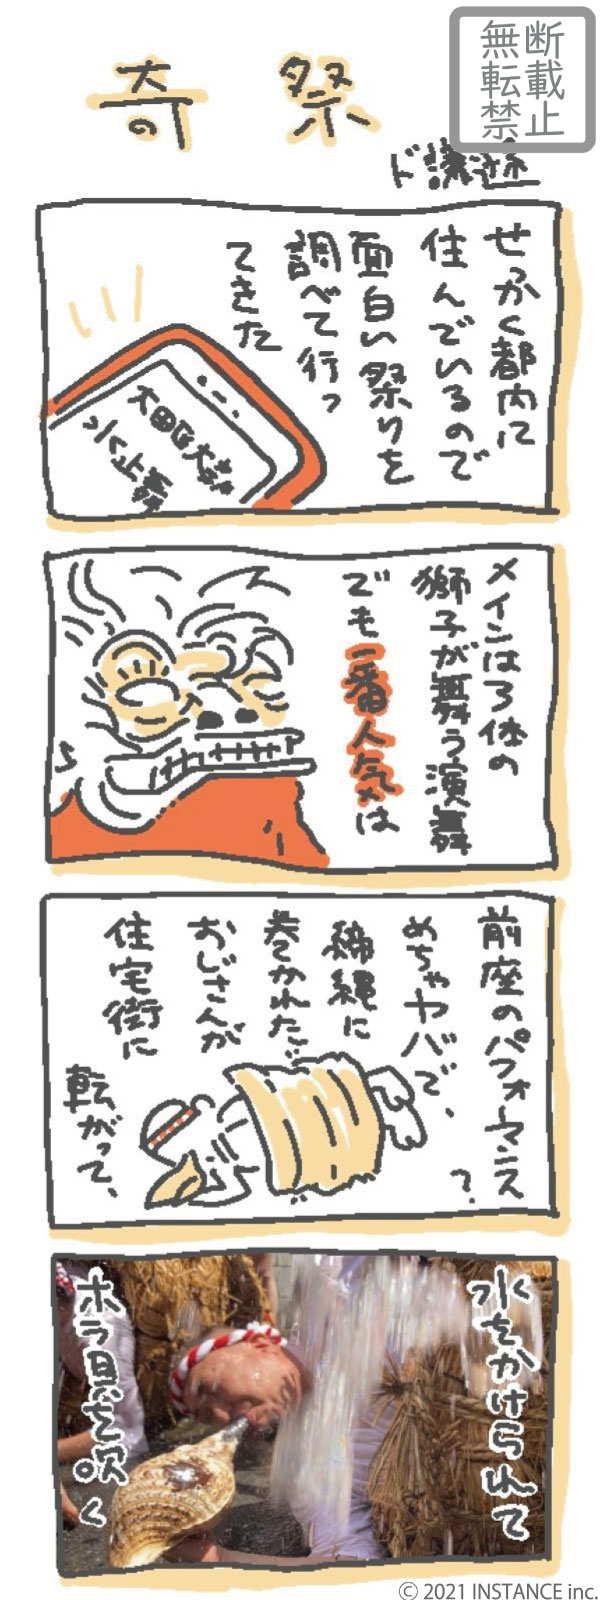 奇祭
無断転載禁止
ド譲遜
せっかく都内に
住んでいるので
面白い祭りを
調べて行っ
てきた
大田区大森
水止舞
メインは3体の
獅子が舞う演舞
でも一番人気は
前座のパフォーマンス?
めちゃヤバで、
締縄に
巻かれた
おじさんが
住宅街に
転がって、
水をかけられて
ホラ貝を吹く
© 2021 INSTANCE inc.